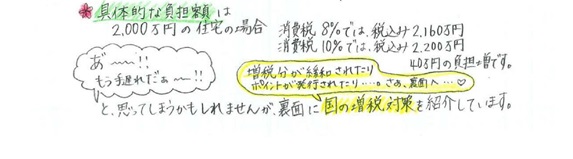 具体的な負担額は
2,000万円の住宅の場合 消費税8%では、税込み2,160万円
消費税10%では、税込み2,200万円
40万円の負担増です。
あ゛〜〜!!
もう手遅れだぁ〜!!
増税分が緩和されたり
ポイントが発行されたり……。さあ、裏面へ…♡
と、思ってしまうかもしれませんが、裏面に国の増税対策を紹介しています。